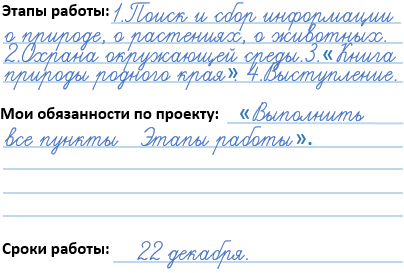 Этапы работы: 1.Поиск и сбор информации
о природе, о растениях, о животных.
2.Охрана окружающей среды.3.«Книга
природы родного края». 4.Выступление.
Мои обязанности по проекту: «Выполнить
все пункты Этапы работы».
Сроки работы: 22 декабря.